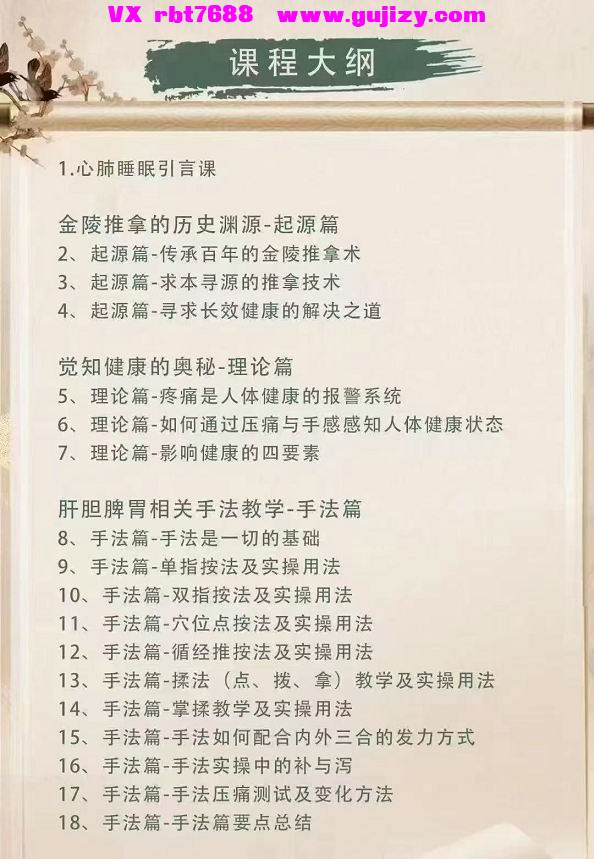 VX rbt7688 www.gujizy.com
课程大纲
1.心肺睡眠引言课
金陵推拿的历史渊源-起源篇
2、起源篇-传承百年的金陵推拿术
3、起源篇-求本寻源的推拿技术
4、起源篇-寻求长效健康的解决之道
觉知健康的奥秘-理论篇
5、理论篇-疼痛是人体健康的报警系统
6、理论篇-如何通过压痛与手感感知人体健康状态
7、理论篇-影响健康的四要素
肝胆脾胃相关手法教学-手法篇
8、手法篇-手法是一切的基础
9、手法篇-单指按法及实操用法
10、手法篇-双指按法及实操用法
11、手法篇-穴位点按法及实操用法
12、手法篇-循经推按法及实操用法
13、手法篇-揉法（点、拨、拿）教学及实操用法
14、手法篇-掌揉教学及实操用法
15、手法篇-手法如何配合内外三合的发力方式
16、手法篇-手法实操中的补与泻
17、手法篇-手法压痛测试及变化方法
18、手法篇-手法篇要点总结